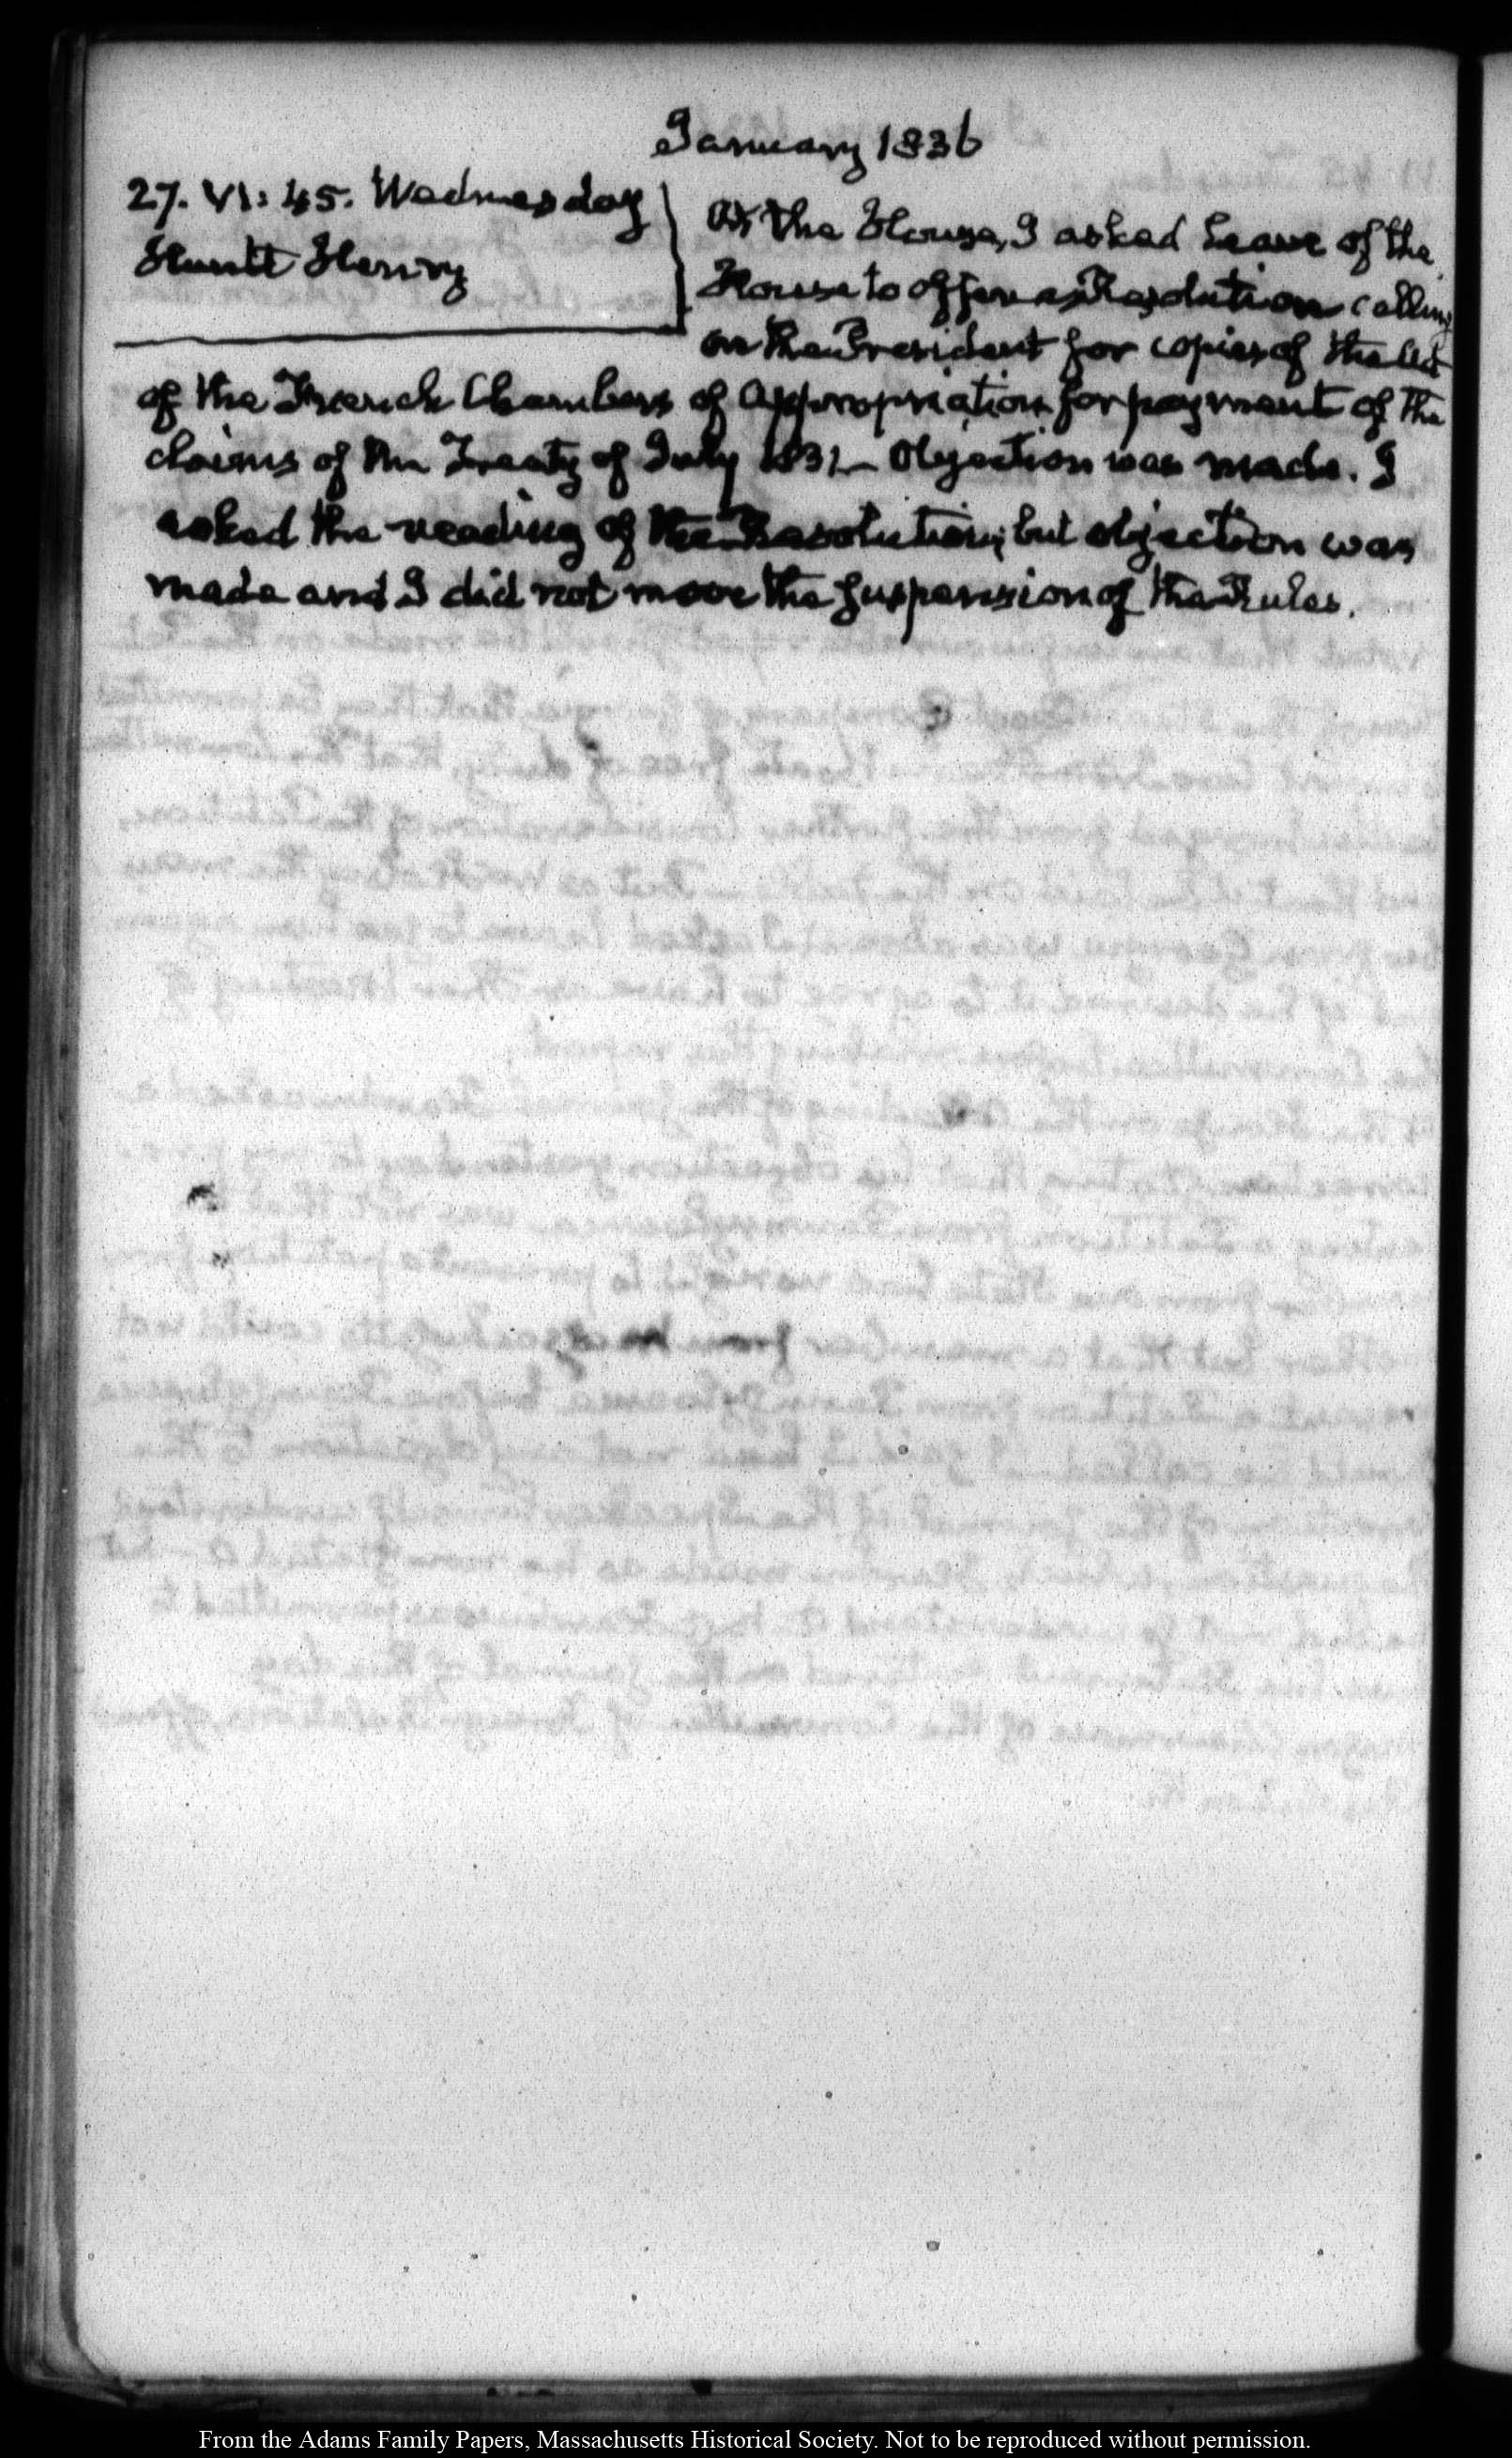 January 1836
27. VI: 45. Wednesday
Huntt Henry
At the House, I asked Leave of the
House to offer a Resolution calling
on the President for copies of the Act
of the French Chambers of Appropriation for payment of the
claims of the Treaty of July 1831— Objection was made. I
asked the reading of the Resolution; but objection was
made and I did not move the suspension of the Rules.
From the Adams Family Papers, Massachusetts Historical Society. Not to be reproduced without permission.